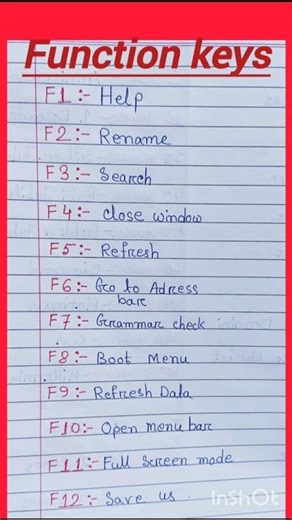 Function keys
F1:- Help
F2:- Rename
F3:- Search
F4:- close window
F5:- Refresh
F6:- Go to Adress
bar
F7:- Grammar check
F8:- Boot Menu
F9:- Refresh Data
F10:- Open menu bar
F11:- Full Screen mode
F12:- Save us.
InShOt